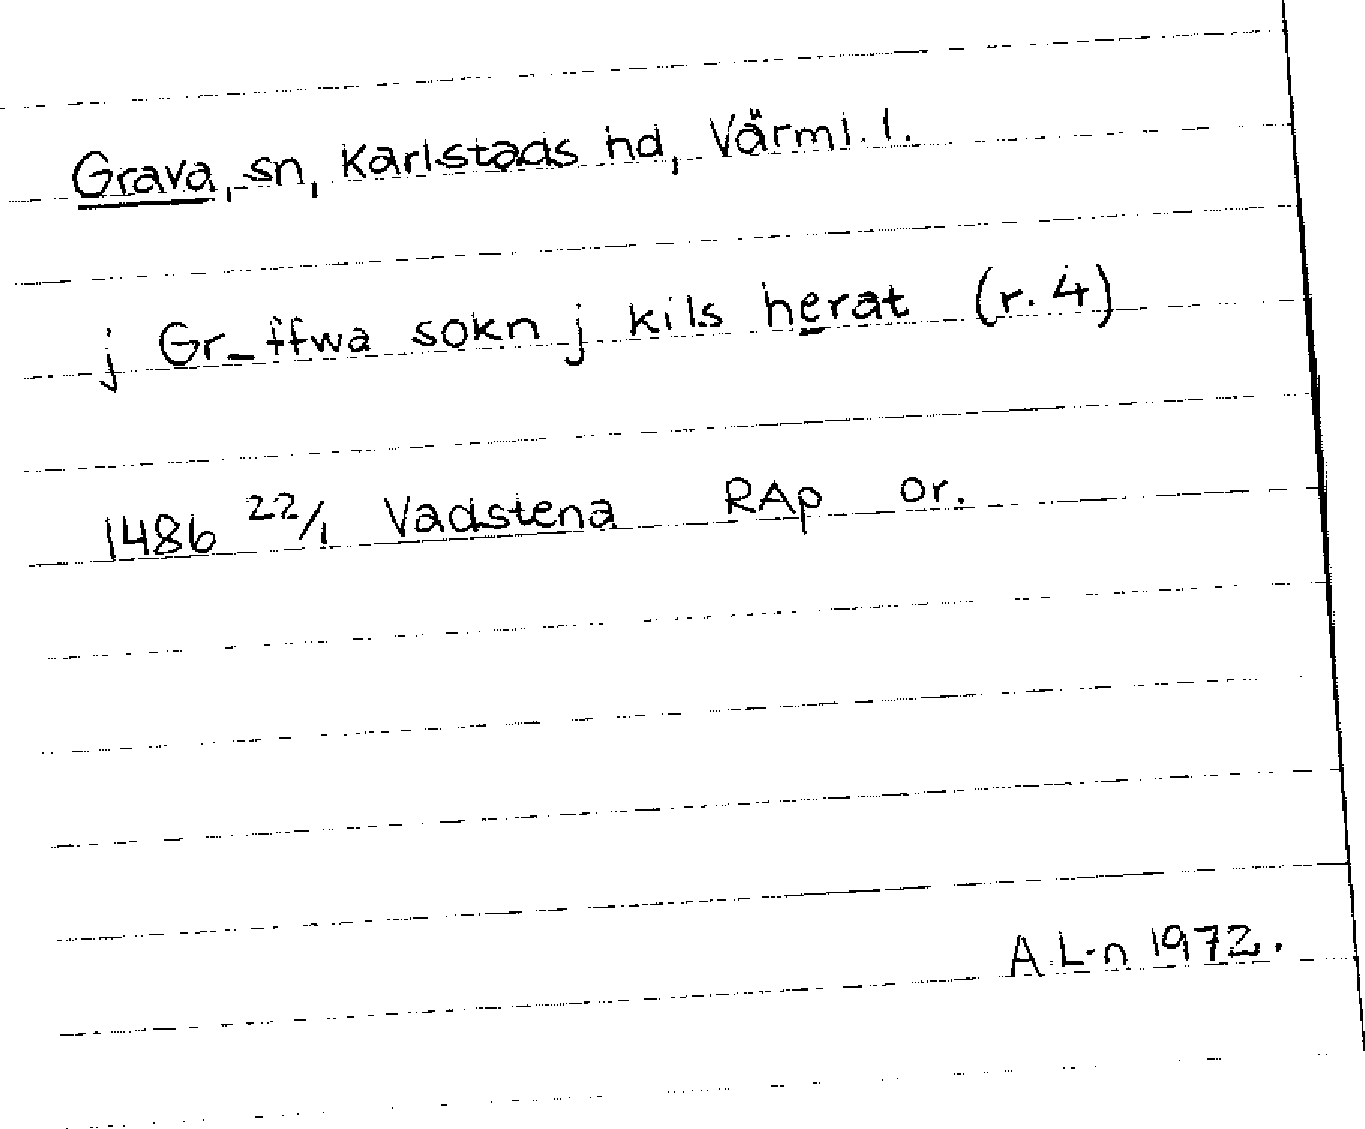 Grava, sn, Karlstads hd, Värml. l.
j Gr_ffwa sokn j kils herat (r. 4)
1486 22/1 Vadstena RAp or.
A L-n 1972.